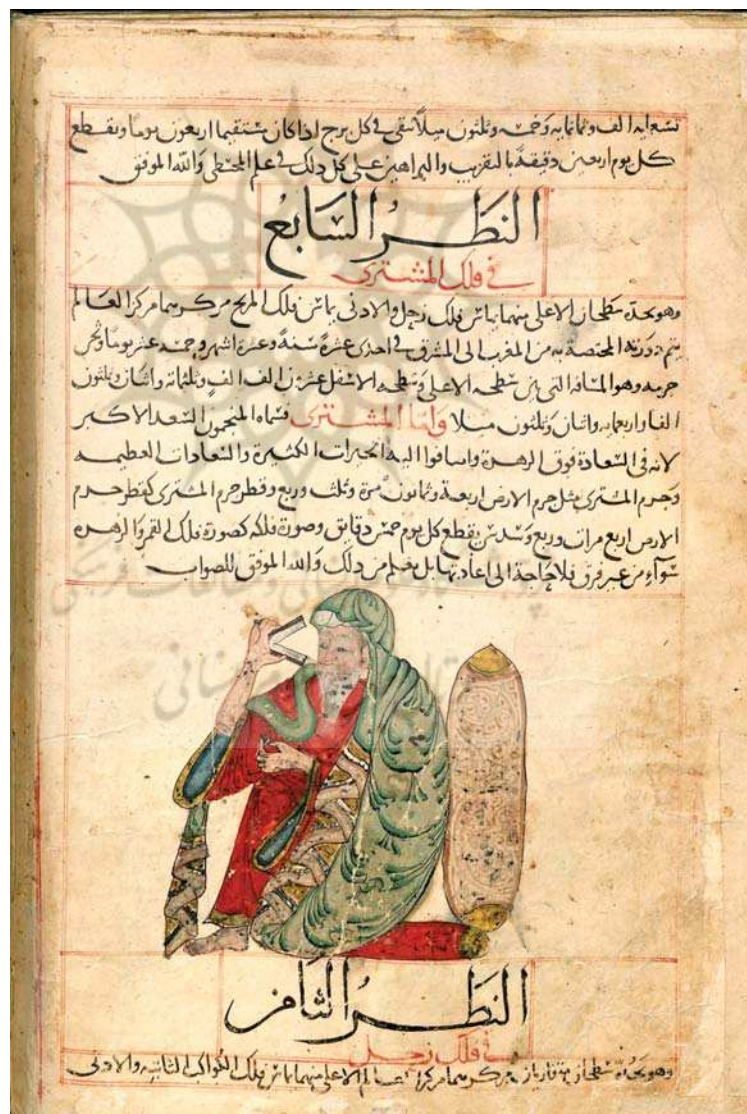 تسعمايه الف وثمانمايه وخمسه وثلثون ميلاً تبقى في كل برج اذا كان مستقيما اربعون يوما وتقطع
كل يوم اربعين دقيقة بالتقريب والبراهين على كل ذلك في علم المجسطى والله الموفق
النظر السابع
في فلك المشترى
وهو يحده سطحان الاعلى منهما يماس فلك زحل والادنى يماس فلك المريخ مركزهما مركز العالم
يتم دورته المختصة به من المغرب الى المشرق في احدى عشرة سنة وعشرة اشهر وخمسه عشر يوما وثخن
جرمه وهو المسافه التى بين سطحه الاعلى وسطحه الاسفل عشرون الف الف وثلثمائة واثنان وثلثون
الفا واربعمايه واثنان وثلثون ميلا واما المشترى فسماه المنجمون السعد الاكبر
لانه في السعادة فوق الزهرة واضافوا اليه الخيرات الكثيرة والسعادات العظيمه
وجرم المشترى مثل جرم الارض اربعة وثمانون مرة وثلث وربع وقطر جرم المشترى كقطر جرم
الارض اربع مرات وربع وسدس يقطع كل يوم خمس دقايق وصورة فلكه كصورة فلك القمر والزهره
سوآء من غير فرق فلا حاجة الى اعادتها بل يعلم من ذلك والله الموفق للصواب
النظر الثامن
في فلك زحل
وهو يحده سطحان مركزهما مركز العالم الاعلى منهما يماس فلك الكواكب الثابته والادنى